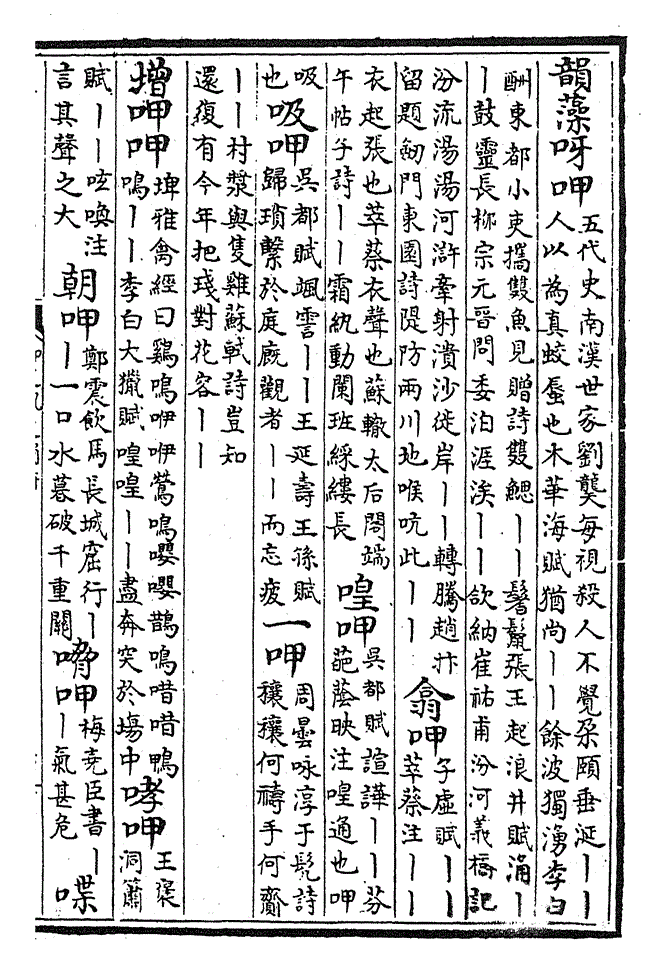 韻藻呀呷
五代史南漢世家劉龑每視殺人不覺朶頤垂涎丨丨
人以為真蛟蜃也木華海賦猶尚丨丨餘波獨湧李白
酬東都小吏攜雙魚見贈詩雙鰓丨丨鬐鬣張王起浪井賦涌丨
丨鼓靈長栁宗元晉問委泊涯涘丨丨丨欱納崔祐甫汾河義橋記
汾流湯湯河滸牽射潰沙徙岸丨丨轉騰趙抃
留題劒門東園詩隄防兩川地喉吭此丨丨
翕呷
子虛賦丨丨
萃蔡注丨丨
衣起張也萃蔡衣聲也蘇轍太后閤端
午帖子詩丨丨霜紈動闌班綵縷長
喤呷
吳都賦諠譁丨丨芬
葩蔭映注喤通也呷
吸
也
吸呷
吳都賦颯丨丨王延壽王孫賦
歸瑣繫於庭廐觀者丨丨而忘疲
一呷
周曇咏淳于髠詩
穰穰何禱手何齎
丨丨村漿與隻雞蘇軾詩豈知
還復有今年把琖對花容丨丨
增呷呷
埤雅禽經曰鷄鳴咿咿鶯鳴嚶嚶鵲鳴唶唶鴨
鳴丨丨李白大獵賦喤喤丨丨盡奔突於塲中
哮呷
王褒
洞簫
賦丨丨呟喚注
言其聲之大
朝呷
鄭震飲馬長城窟行丨
丨一口水暮破千重關
呷
梅堯臣書丨
丨氣甚危
喋